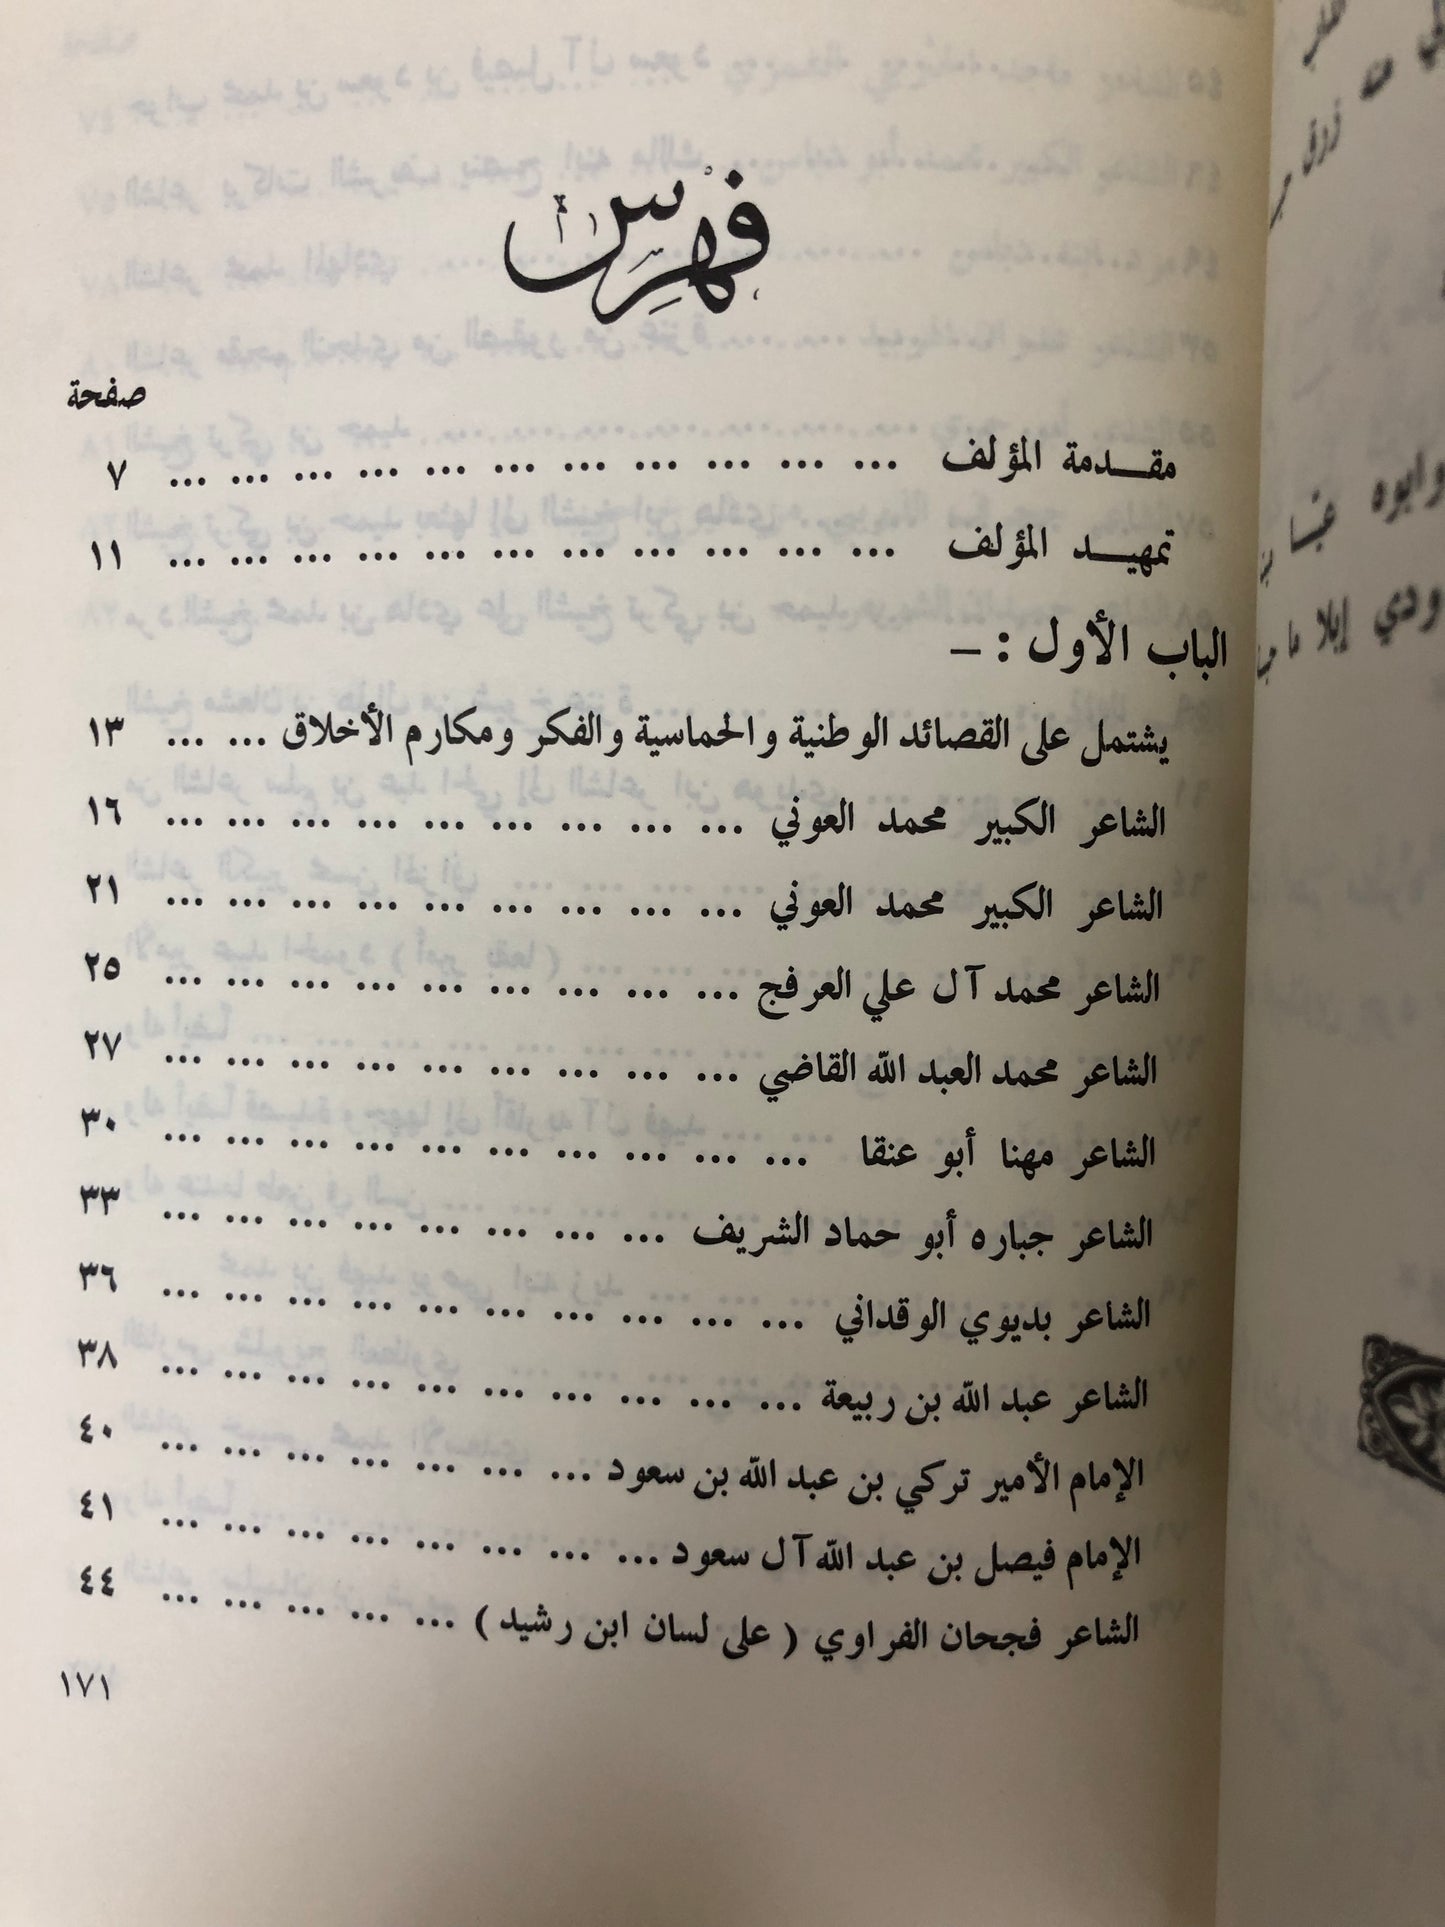 فهرس
صفحة
مقدمة المؤلف ... ... ... ... ... ... ... ... ... ... ... ٧
تمهيد المؤلف ... ... ... ... ... ... ... ... ... ... ... ١١
الباب الأول : –
يشتمل على القصائد الوطنية والحماسية والفكر ومكارم الأخلاق ... ... ١٣
الشاعر الكبير محمد العوني ... ... ... ... ... ... ... ... ... ١٦
الشاعر الكبير محمد العوني ... ... ... ... ... ... ... ... ... ٢١
الشاعر محمد آل علي العرفج ... ... ... ... ... ... ... ... ... ٢٥
الشاعر محمد العبد الله القاضي ... ... ... ... ... ... ... ... ... ٢٧
الشاعر مهنا أبو عنقا ... ... ... ... ... ... ... ... ... ... ٣٠
الشاعر جباره أبو حماد الشريف ... ... ... ... ... ... ... ... ٣٣
الشاعر بديوي الوقداني ... ... ... ... ... ... ... ... ... ... ٣٦
الشاعر عبد الله بن ربيعة ... ... ... ... ... ... ... ... ... ... ٣٨
الإمام الأمير تركي بن عبد الله بن سعود ... ... ... ... ... ... ... ٤٠
الإمام فيصل بن عبد الله آل سعود ... ... ... ... ... ... ... ... ٤١
الشاعر فجحان الفراوي ( على لسان ابن رشيد ) ... ... ... ... ... ٤٤
١٧١